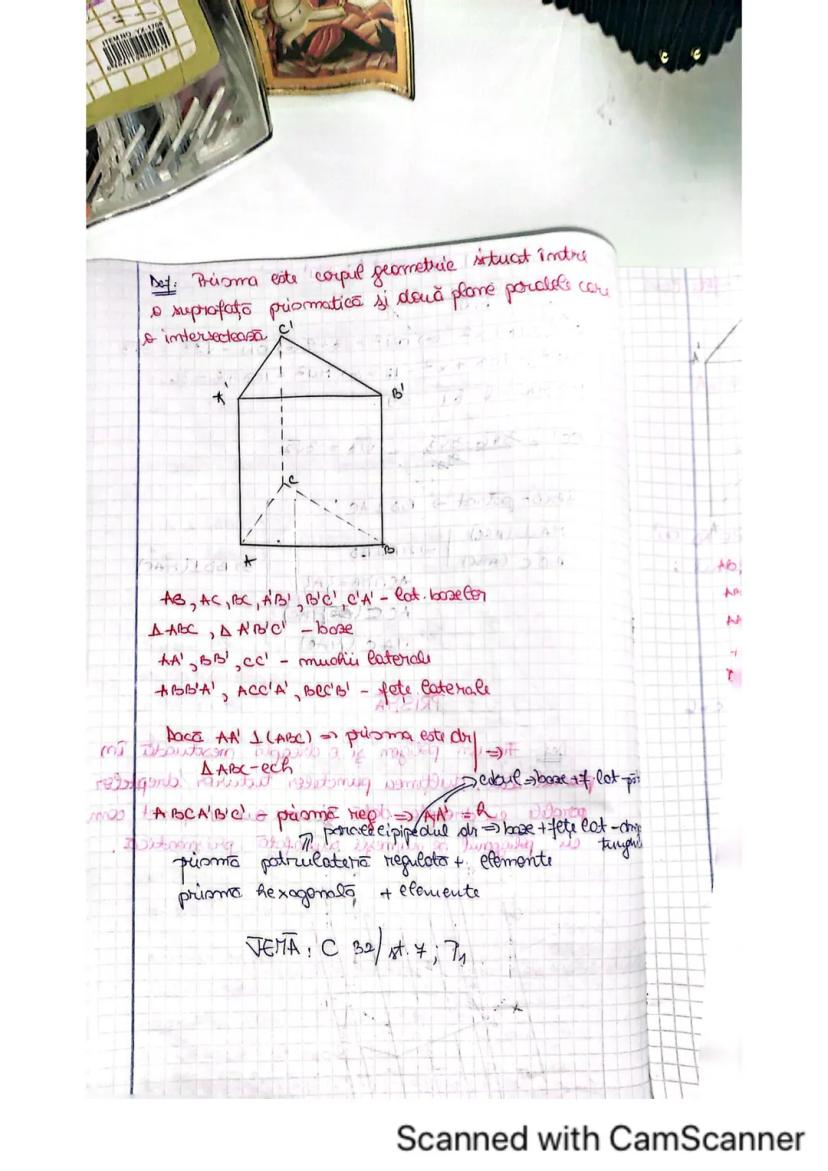 ITEM NO. YX-1708
Def: Prisma este corpul geometric situat între
o suprafață prismatică și două plane paralele care
o intersectează
C'
A'
B'
C
A
B
AB, AC, BC, A'B', B'C', C'A' - lat. bazelor
ΔABC, ΔA'B'C' - baze
AA', BB', CC' - muchii laterale
ABB'A', ACC'A', BCC'B' - fețe laterale
Dacă AA' ⊥ (ABC) => prisma este dr
ΔABC - ech
=>
cubul => baze + f lat - păt
ABCA'B'C' - prismă reg => AA' = h
paralelipipedul dr => baze + fețe lat - drep
tunghi
prismă patrulateră regulată + elemente
prismă hexagonală, + elemente
TEMĂ: C 32/ st. 7; P1
Scanned with CamScanner